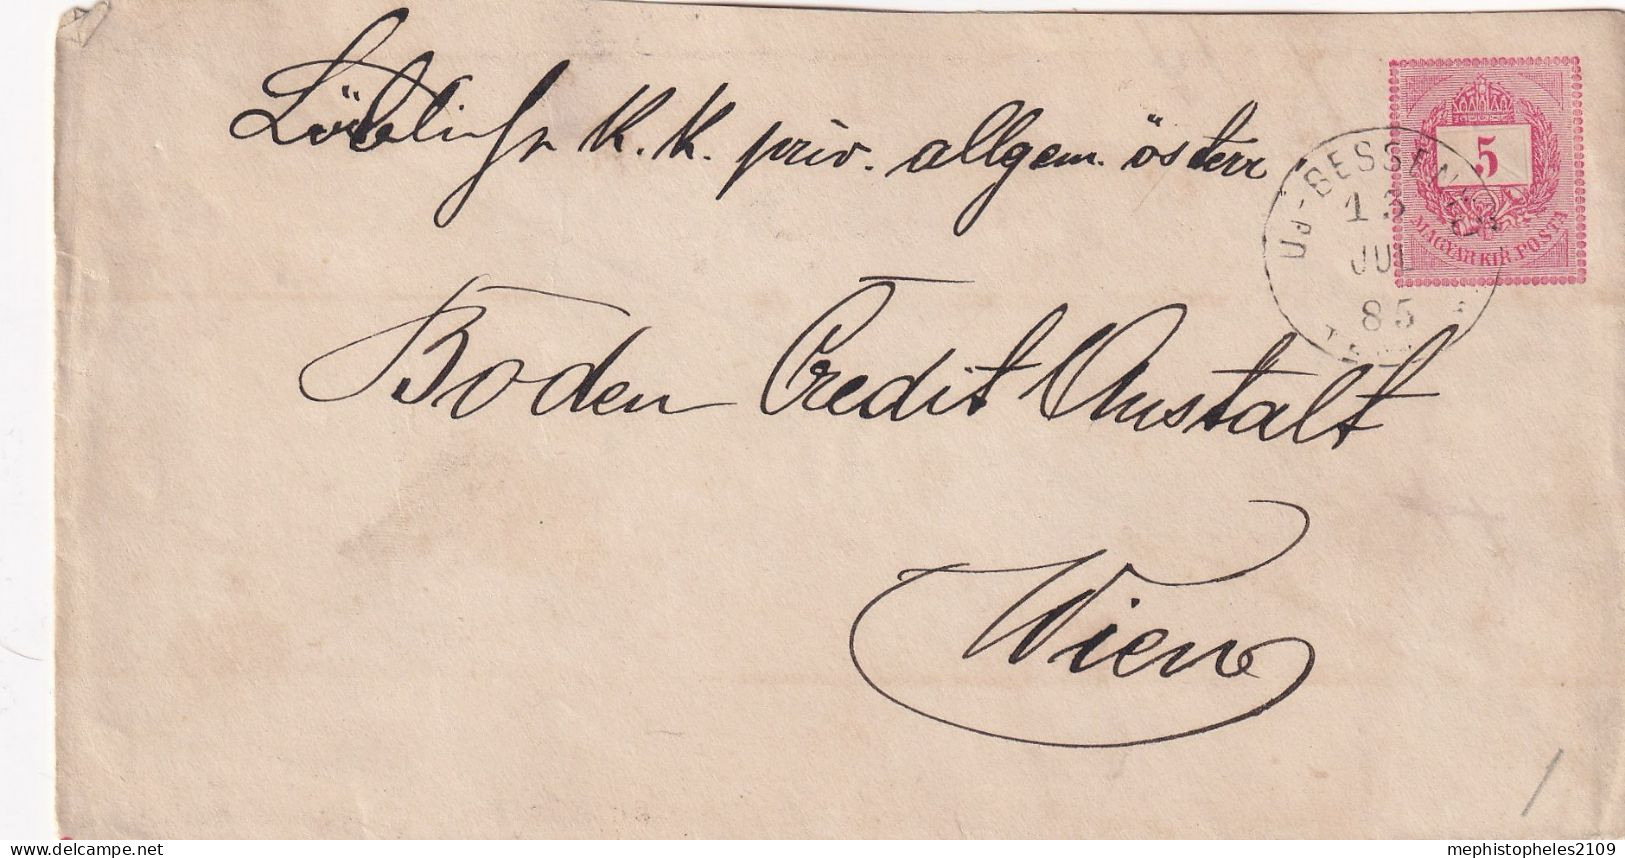 Löbliche K. K. priv. allgem. österr.
Boden Credit Anstalt
Wien
5
MAGYAR KIR. POSTA
13
JUL
85
delcampe.net
mephistopheles2109